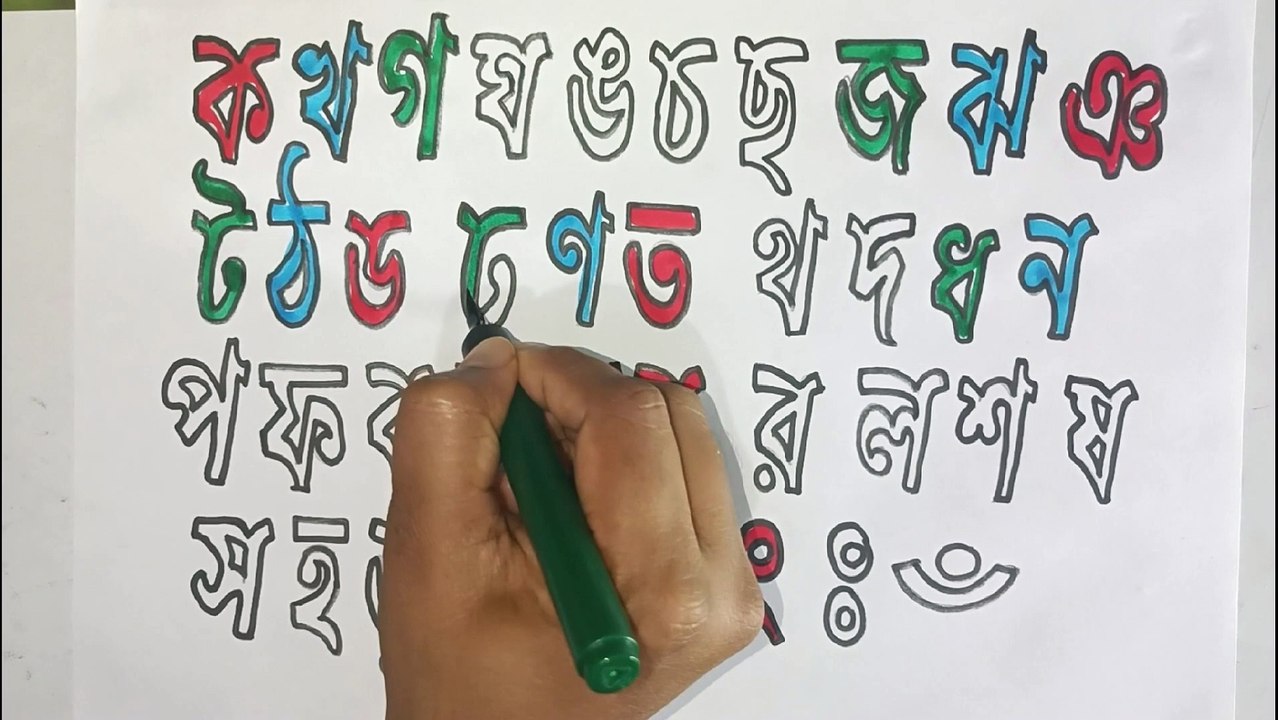 ক খ গ ঘ ঙ চ ছ জ ঝ ঞ
ট ঠ ড ঢ ণ ত থ দ ধ ন
প ফ ব র ল শ ষ
স হ ং ঃ ঁ